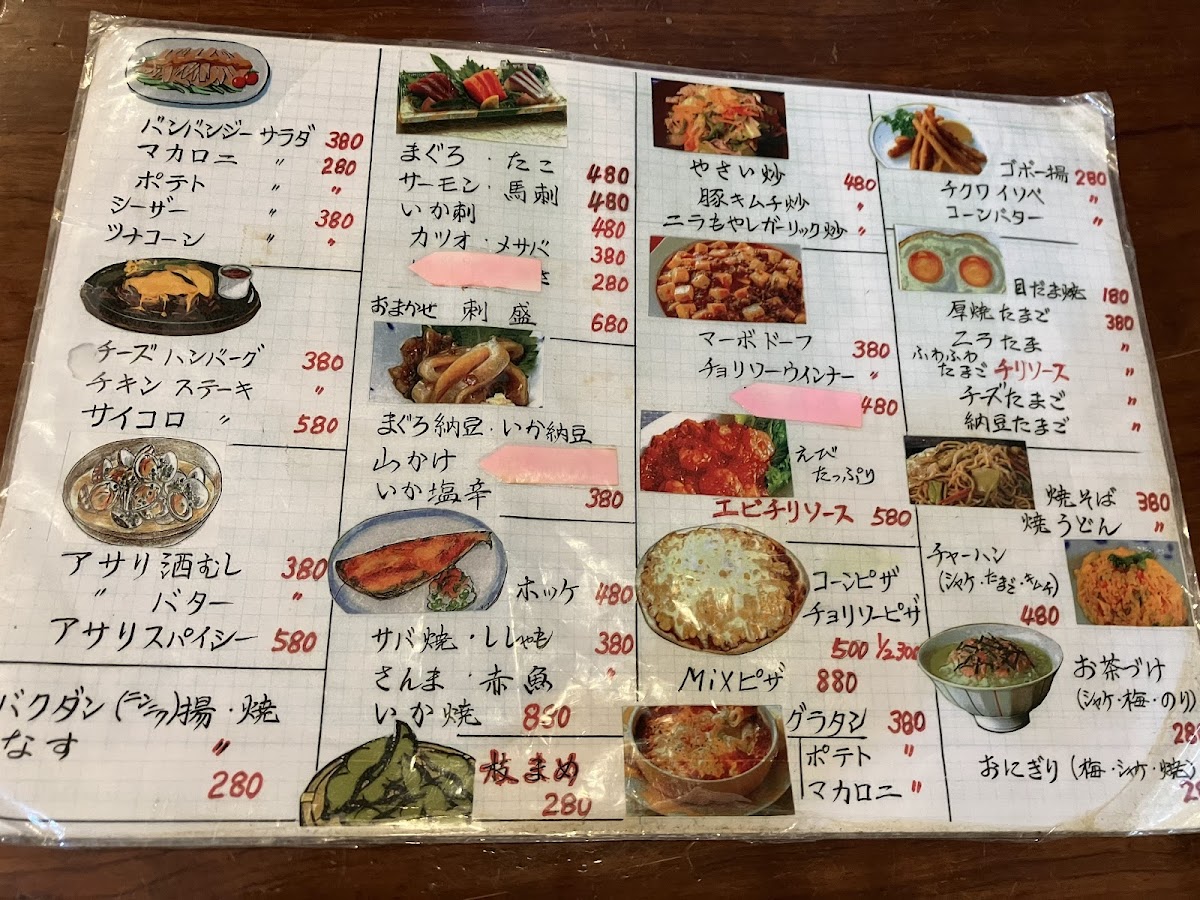 バンバンジーサラダ 380
マカロニ 〃 280
ポテト 〃 〃
シーザー 〃 380
ツナコーン 〃 〃
チーズハンバーグ 380
チキンステーキ 〃
サイコロ 〃 580
アサリ酒むし 380
〃 バター 〃
アサリスパイシー 580
バクダン(ニンニク)揚・焼
なす 〃
280
まぐろ・たこ 480
サーモン・馬刺 480
いか刺 480
カツオ・メサバ 380
280
おまかせ 刺盛 680
まぐろ納豆・いか納豆
山かけ
いか塩辛 380
ホッケ 480
サバ焼・ししゃも 380
さんま・赤魚 〃
いか焼 880
枝まめ
280
やさい炒 480
豚キムチ炒 〃
ニラもやしガーリック炒 〃
マーボドーフ 380
チョリソーウインナー 〃
480
えび
たっぷり
エビチリソース 580
コーンピザ
チョリソーピザ
500 1/2 300
MiXピザ 880
グラタン 380
ポテト 〃
マカロニ 〃
ゴボー揚 280
チクワイソベ 〃
コーンバター 〃
目だま焼 180
厚焼たまご 380
ニラたま 〃
ふわふわ
たまごチリソース 〃
チーズたまご 〃
納豆たまご 〃
焼そば 380
焼うどん 〃
チャーハン
(シャケ・たまご・キムチ)
480
お茶づけ
(シャケ・梅・のり)
280
おにぎり(梅・シャケ・焼)